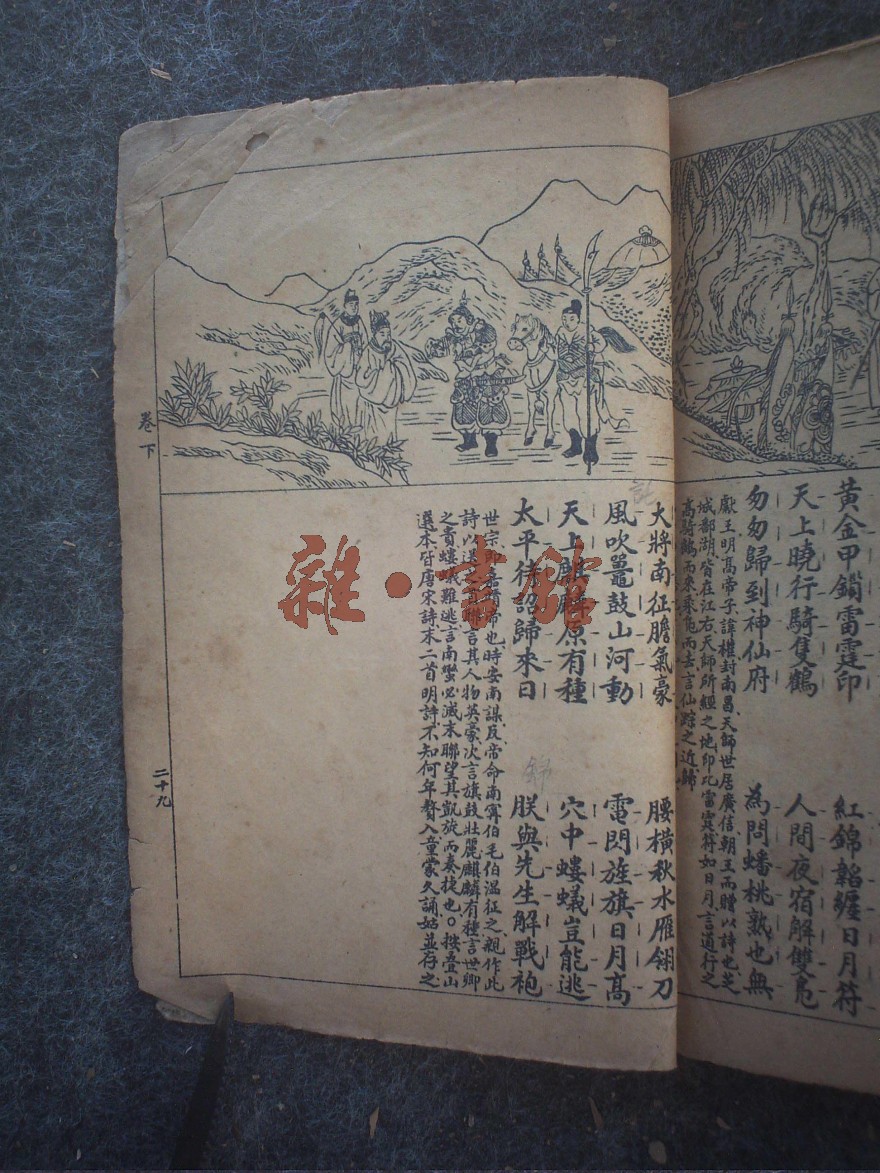 黃金甲鎖雷霆印
紅錦韜纏日月符
天上曉行騎隻鶴
人間夜宿解雙鳧
匆匆歸到神仙府
為問蟠桃熟也無
獻王明高帝子諱權封南昌天師世居廣信朝王而贈以詩也芝
城鄱湖皆在江右天師所經之地印比雷霆符如日月言道行之
高騎鶴而來乘鳧而去言仙踪之近歸
大將南征膽氣豪
腰橫秋水雁翎刀
風吹鼍鼓山河動
雷閃旌旗日月高
天上麒麟原有種
穴中螻蟻豈能逃
太平待詔歸來日
朕與先生解戰袍
世宗即嘉靖帝也時安南謀反帝命南寧伯毛伯溫征之親作此
詩以送首聯言其人物英豪次言旗鼓壯麗麒麟有種言世卿
之貴螻蟻難逃言南蠻必滅末聯望其凱旋而奏捷也〇按疊山
選本皆唐宋詩末二首明詩不知何年贅入童蒙久誦姑並存之
卷下
二十九
雜·書館